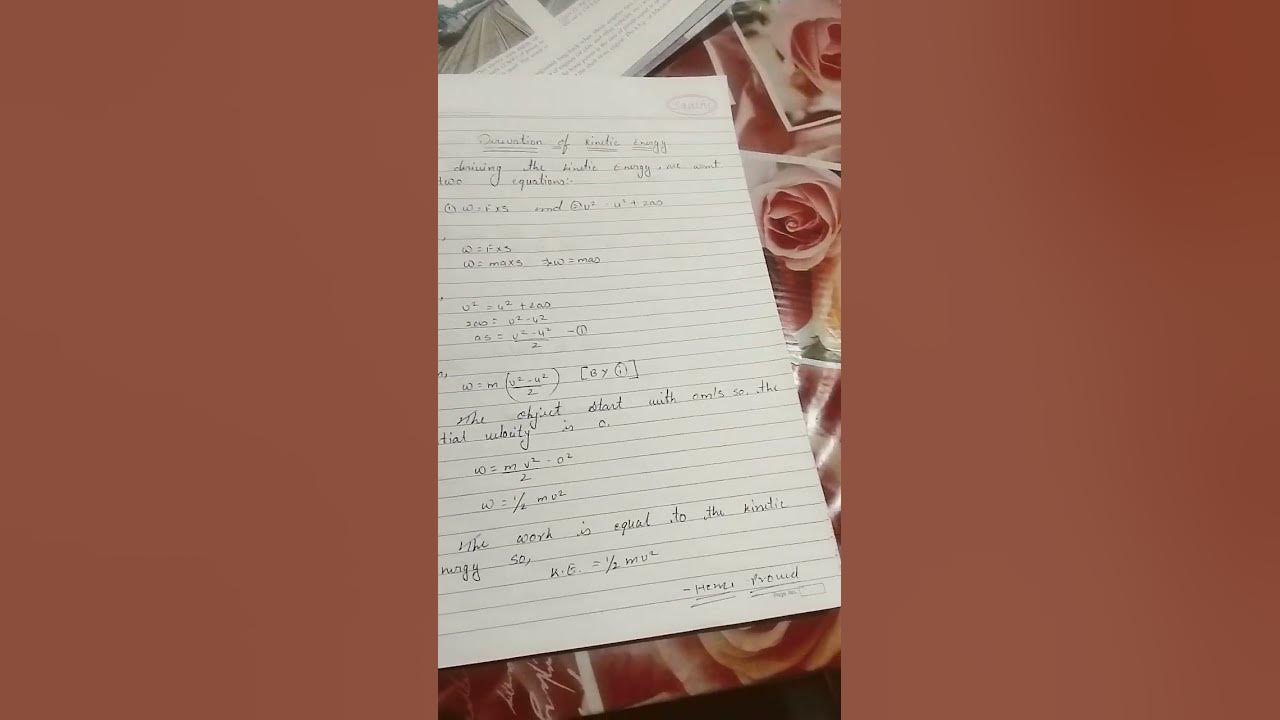 Saathi
Derivation of Kinetic Energy
deriving the kinetic Energy, we want
two equations:-
① W=F×s and ② v² = u² + 2as
W=F×s
W= ma×s ⇒ W = mas
v² = u² + 2as
2as = v² - u²
as = v² - u² / 2 - ①
W = m (v² - u² / 2) [By ①]
The object start with 0m/s so, the
tial velocity is 0.
W = m v² - 0² / 2
W = 1/2 mv²
The work is equal to the kinetic
nergy so,
K.E. = 1/2 mv²
- Hence Proved
Page No.